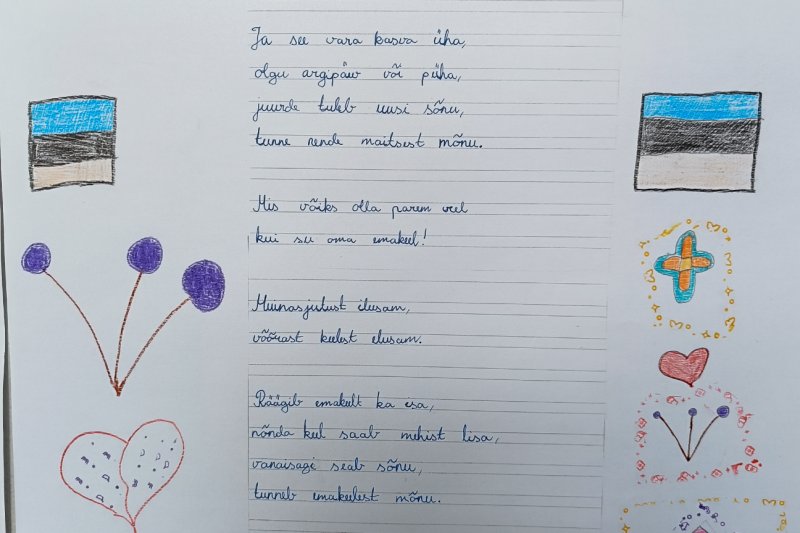 Ja see vara kasva üha,
olgu argipäev või püha,
juurde tuleb uusi sõnu,
tunne nende maitsest mõnu.
Mis võiks olla parem veel
kui su oma emakeel!
Muinasjutust ilusam,
võõrast keelest elusam.
Räägib emakeelt ka isa,
nõnda keel saab mehist lisa,
vanaisagi seab sõnu,
tunneb emakeelest mõnu.